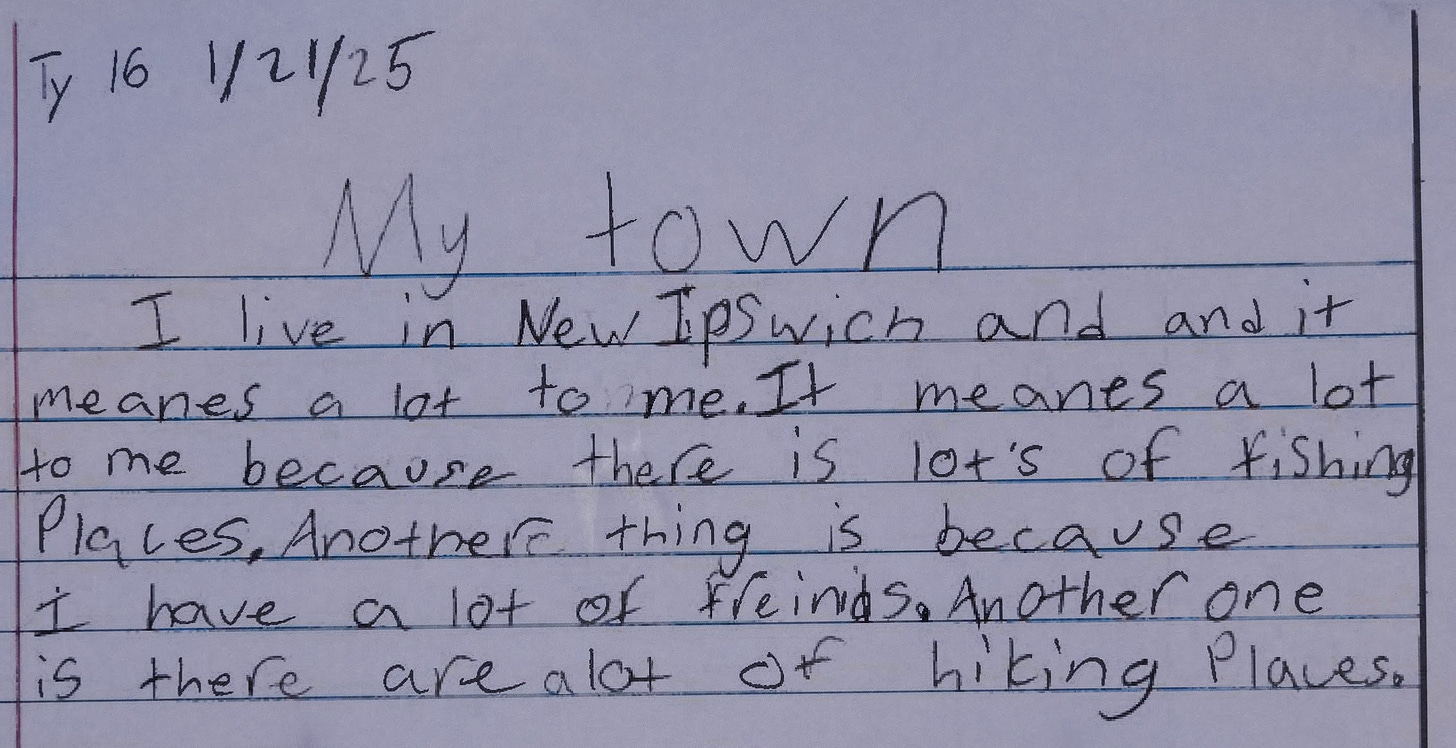 Ty 16 1/21/25
My town
I live in New Ipswich and and it
meanes a lot to me. It meanes a lot
to me because there is lot's of fishing
Places. Anothere thing is because
I have a lot of freinids. Another one
is there are alot of hiking Places.